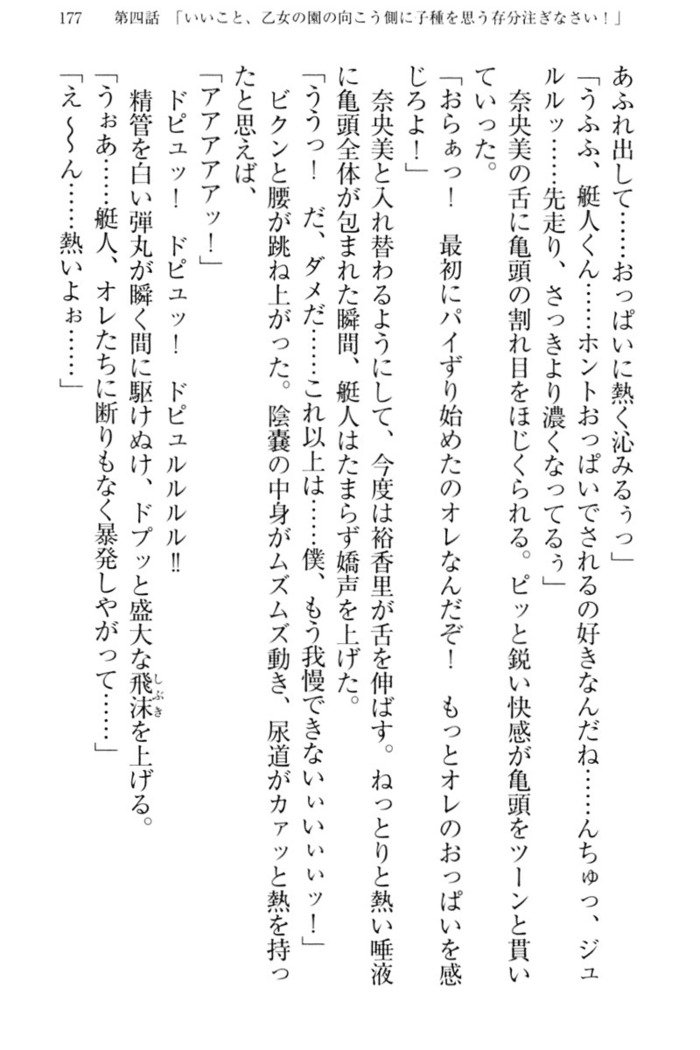 177　第四話　「いいこと、乙女の園の向こう側に子種を思う存分注ぎなさい！」
あふれ出して……おっぱいに熱く沁みるぅっ」
「うふふ、艇人くん……ホントおっぱいでされるの好きなんだね……んちゅっ、ジュ
ルルッ……先走り、さっきより濃くなってるぅ」
奈央美の舌に亀頭の割れ目をほじくられる。ピッと鋭い快感が亀頭をツーンと貫い
ていった。
「おらぁっ！　最初にパイずり始めたのオレなんだぞ！　もっとオレのおっぱいを感
じろよ！」
奈央美と入れ替わるようにして、今度は裕香里が舌を伸ばす。ねっとりと熱い唾液
に亀頭全体が包まれた瞬間、艇人はたまらず嬌声を上げた。
「ううっ！　だ、ダメだ……これ以上は……僕、もう我慢できないぃぃぃぃッ！」
ビクンと腰が跳ね上がった。陰嚢の中身がムズムズ動き、尿道がカァッと熱を持っ
たと思えば、
「アアアアアッ！」
ドピュッ！　ドピュッ！　ドピュルルルル‼
精管を白い弾丸が瞬く間に駆けぬけ、ドプッと盛大な飛沫しぶきを上げる。
「うぉあ……艇人、オレたちに断りもなく暴発しやがって……」
「え〜〜ん……熱いよぉ……」